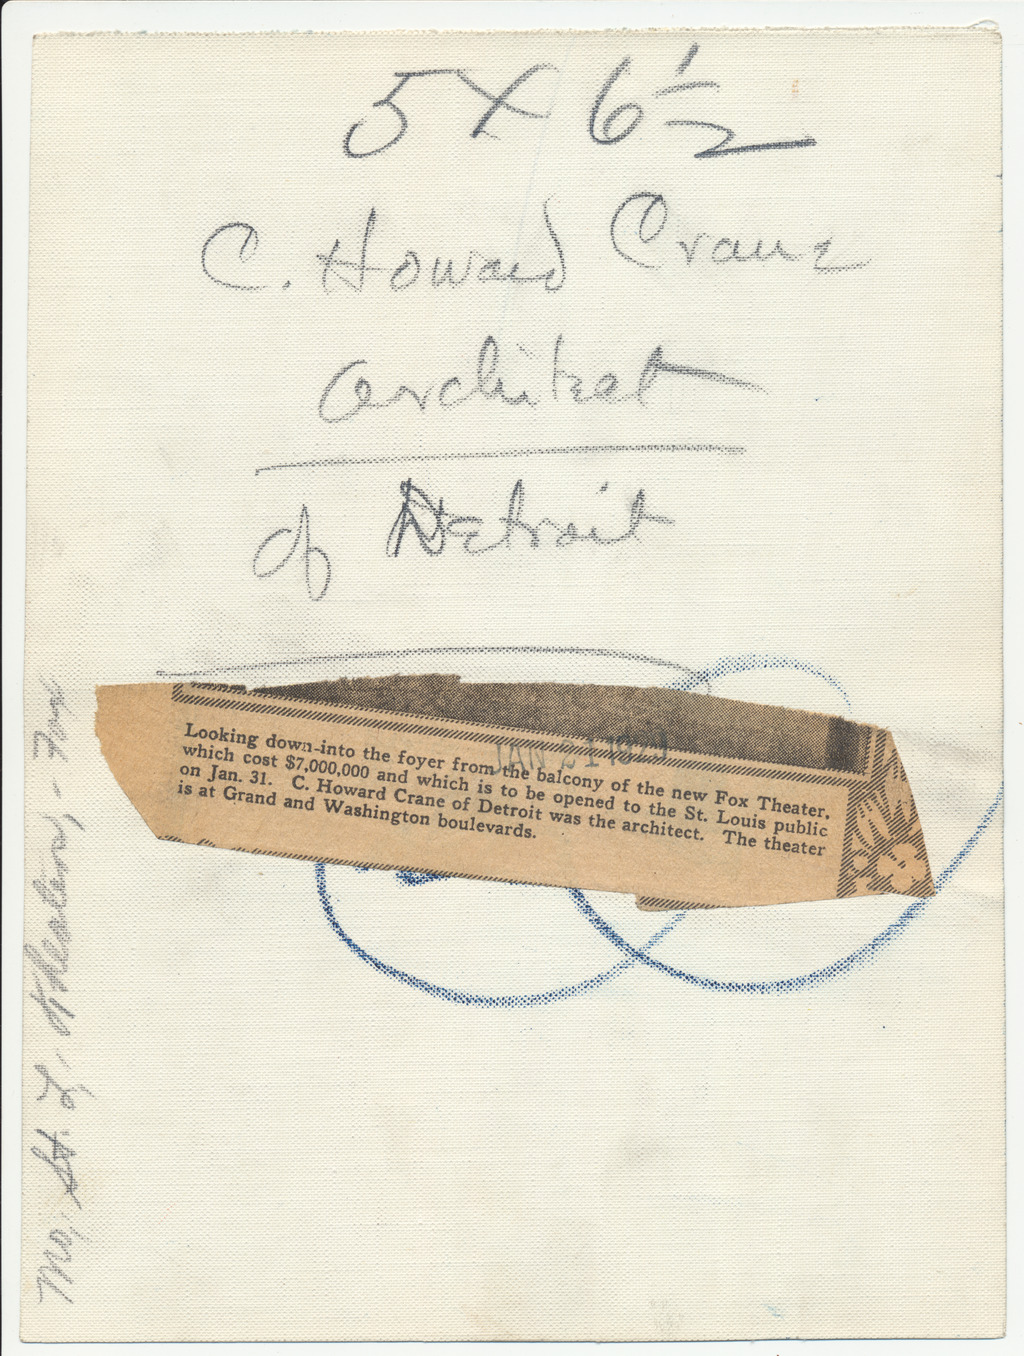 5 X 6 1/2
C. Howard Crane
architect
of Detroit
JAN 21 1929
Looking down-into the foyer from the balcony of the new Fox Theater,
which cost $7,000,000 and which is to be opened to the St. Louis public
on Jan. 31. C. Howard Crane of Detroit was the architect. The theater
is at Grand and Washington boulevards.
Mo, St. L, Theaters, - Fox